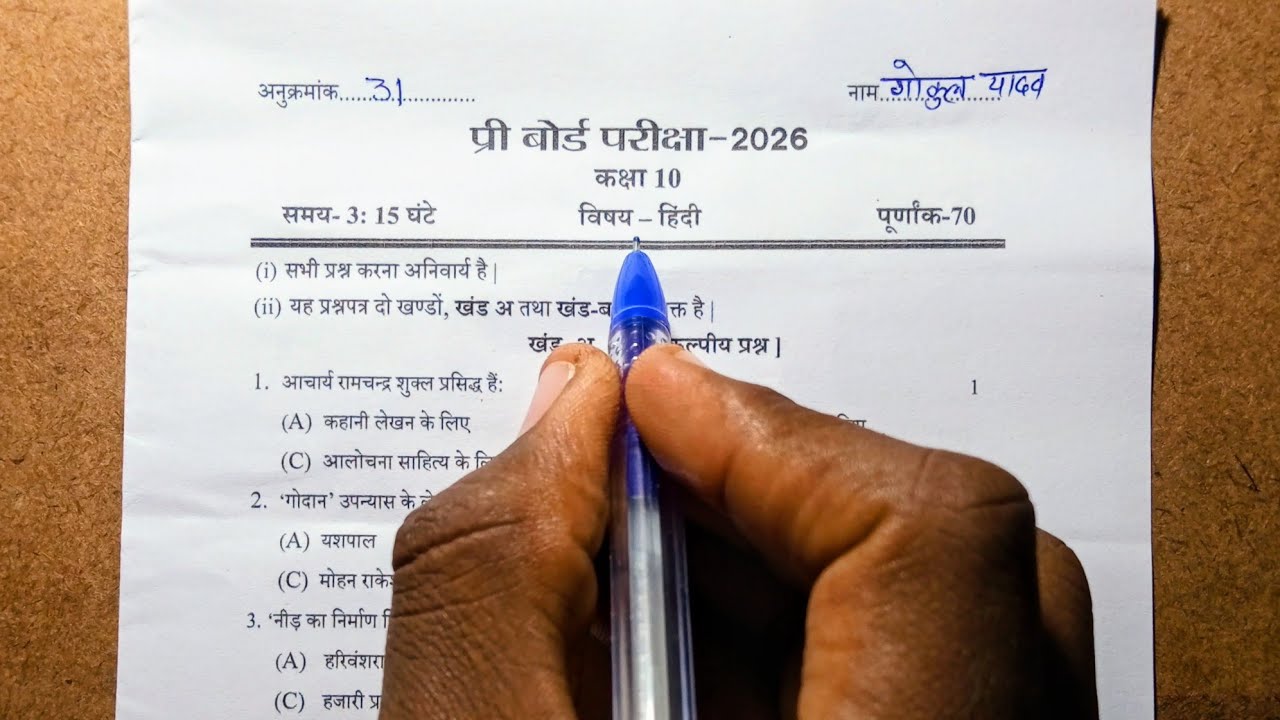 अनुक्रमांक......31............ नाम...गोकुल यादव
प्री बोर्ड परीक्षा-2026
कक्षा 10
समय- 3: 15 घंटे विषय – हिंदी पूर्णांक-70
(i) सभी प्रश्न करना अनिवार्य है |
(ii) यह प्रश्नपत्र दो खण्डों, खंड अ तथा खंड-ब है |
खंड अ प्रश्न ]
1. आचार्य रामचन्द्र शुक्ल प्रसिद्ध हैं: 1
(A) कहानी लेखन के लिए
(C) आलोचना साहित्य के
2. ‘गोदान’ उपन्यास के
(A) यशपाल
(C) मोहन
3. ‘नीड़ का निर्माण
(A)
(C) हजारी